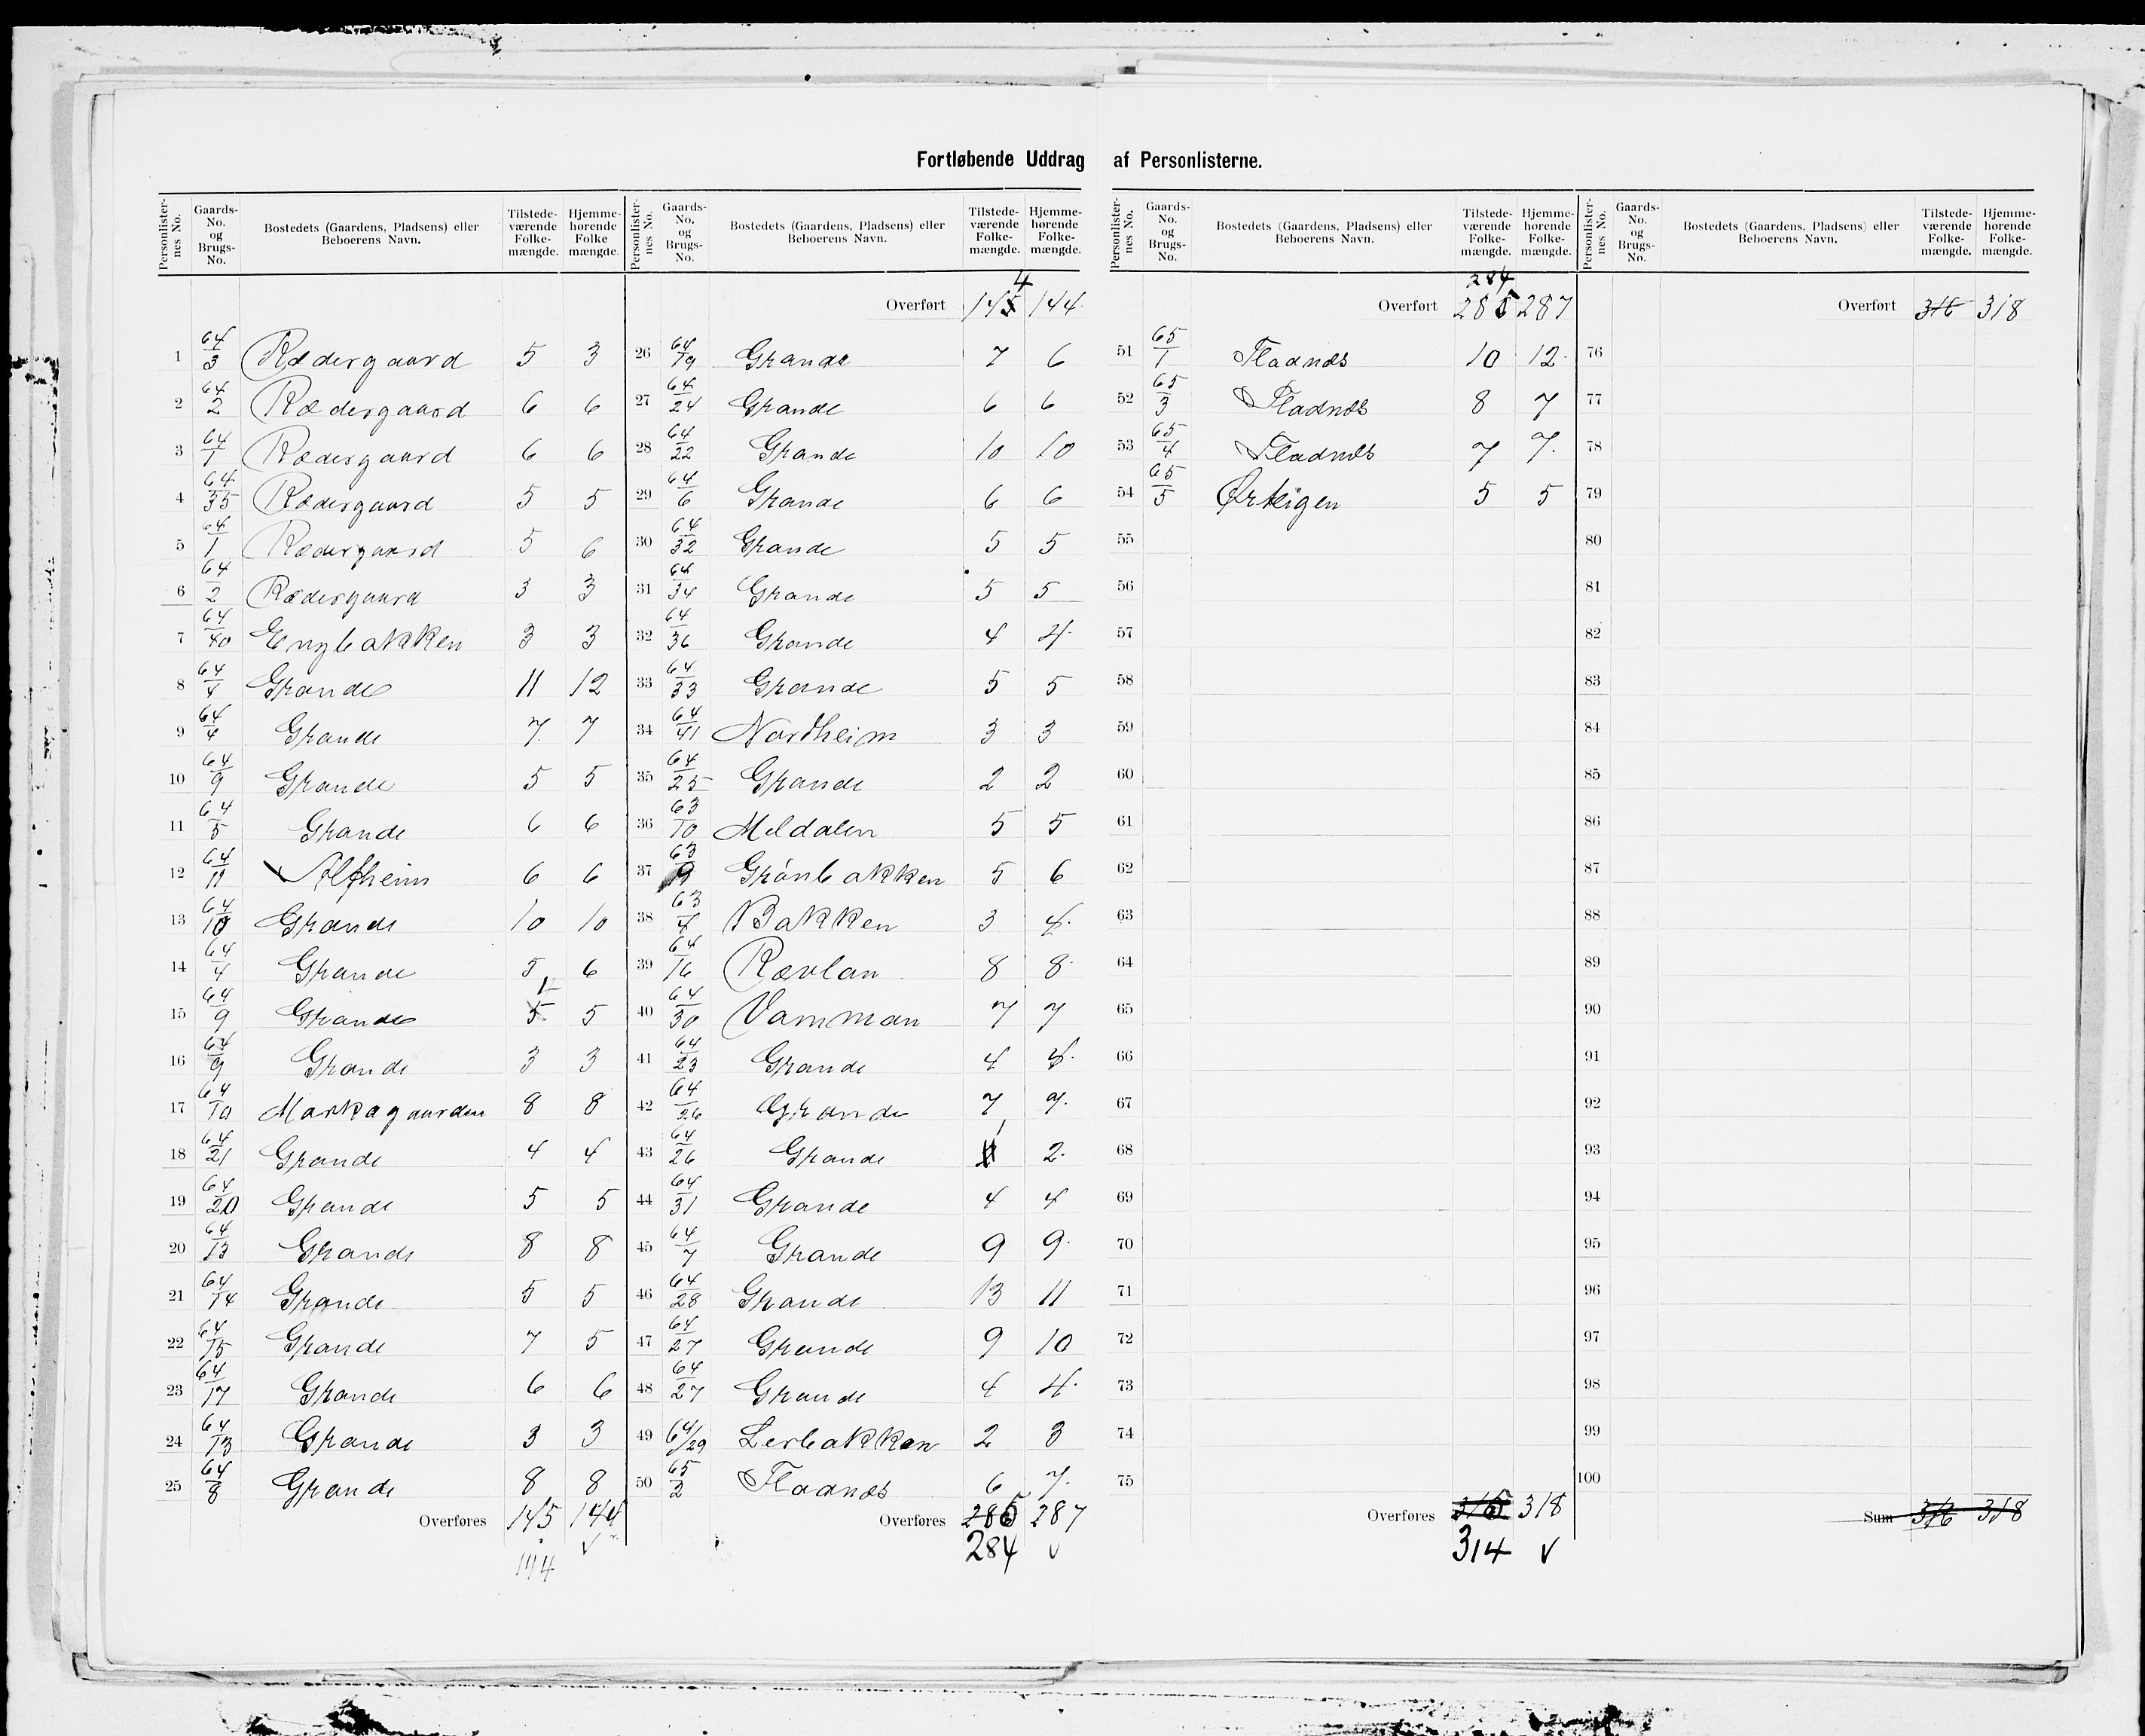 Fortløbende Uddrag af Personlisterne.
Personlister-nes No. Gaards-No. og Brugs-No. Bostedets (Gaardens, Pladsens) eller Beboerens Navn. Tilstede-værende Folke-mængde. Hjemme-hørende Folke mængde.
1 64/3 Rædergaard 5 3
2 64/2 Rædergaard 6 6
3 64/1 Rædergaard 6 6
4 64/35 Rædergaard 5 5
5 64/1 Rædergaard 5 6
6 64/2 Rædergaard 3 3
7 64/40 Engbakken 3 3
8 64/4 Grande 11 12
9 64/4 Grande 7 7
10 64/9 Grande 5 5
11 64/5 Grande 6 6
12 64/11 Alfheim 6 6
13 64/10 Grande 10 10
14 64/4 Grande 5 6
15 64/9 Grande 5 5
16 64/9 Grande 3 3
17 64/10 Markagaarden 8 8
18 64/21 Grande 4 4
19 64/20 Grande 5 5
20 64/13 Grande 8 8
21 64/14 Grande 5 5
22 64/15 Grande 7 5
23 64/17 Grande 6 6
24 64/13 Grande 3 3
25 64/8 Grande 8 8
Overføres 145 144
144 v
Personlister-nes No. Gaards-No. og Brugs-No. Bostedets (Gaardens, Pladsens) eller Beboerens Navn. Tilstede-værende Folke-mængde. Hjemme-hørende Folke-mængde.
4
Overført 145 144
26 64/19 Grande 7 6
27 64/24 Grande 6 6
28 64/22 Grande 10 10
29 64/6 Grande 6 6
30 64/32 Grande 5 5
31 64/34 Grande 5 5
32 64/36 Grande 4 4
33 64/33 Grande 5 5
34 64/41 Nordheim 3 3
35 64/25 Grande 2 2
36 63/10 Meldalen 5 5
37 63/9 Grønbakken 5 6
38 63/4 Bakken 3 4
39 64/16 Rævlan 8 8
40 64/30 Vamman 7 7
41 64/23 Grande 4 4
42 64/26 Grande 7 7
43 64/26 Grande 1 2
44 64/31 Grande 4 4
45 64/7 Grande 9 9
46 64/28 Grande 13 11
47 64/27 Grande 9 10
48 64/27 Grande 4 4
49 64/29 Lerbakken 2 3
50 65/2 Fladnæs 6 7
Overføres 285 287
284 v
Personlister-nes No. Gaards-No. og Brugs-No. Bostedets (Gaardens, Pladsens) eller Beboerens Navn. Tilstede-værende Folke-mængde. Hjemme-hørende Folke-mængde.
284
Overført 285 287
51 65/1 Fladnæs 10 12
52 65/3 Fladnæs 8 7
53 65/4 Fladnæs 7 7
54 65/5 Ørteigen 5 5
55
56
57
58
59
60
61
62
63
64
65
66
67
68
69
70
71
72
73
74
75
Overføres 315 318
314 v
Personlister-nes No. Gaards-No. og Brugs-No. Bostedets (Gaardens, Pladsens) eller Beboerens Navn. Tilstede-værende Folke-mængde. Hjemme-hørende Folke-mængde.
Overført 316 318
76
77
78
79
80
81
82
83
84
85
86
87
88
89
90
91
92
93
94
95
96
97
98
99
100
Sum 316 318